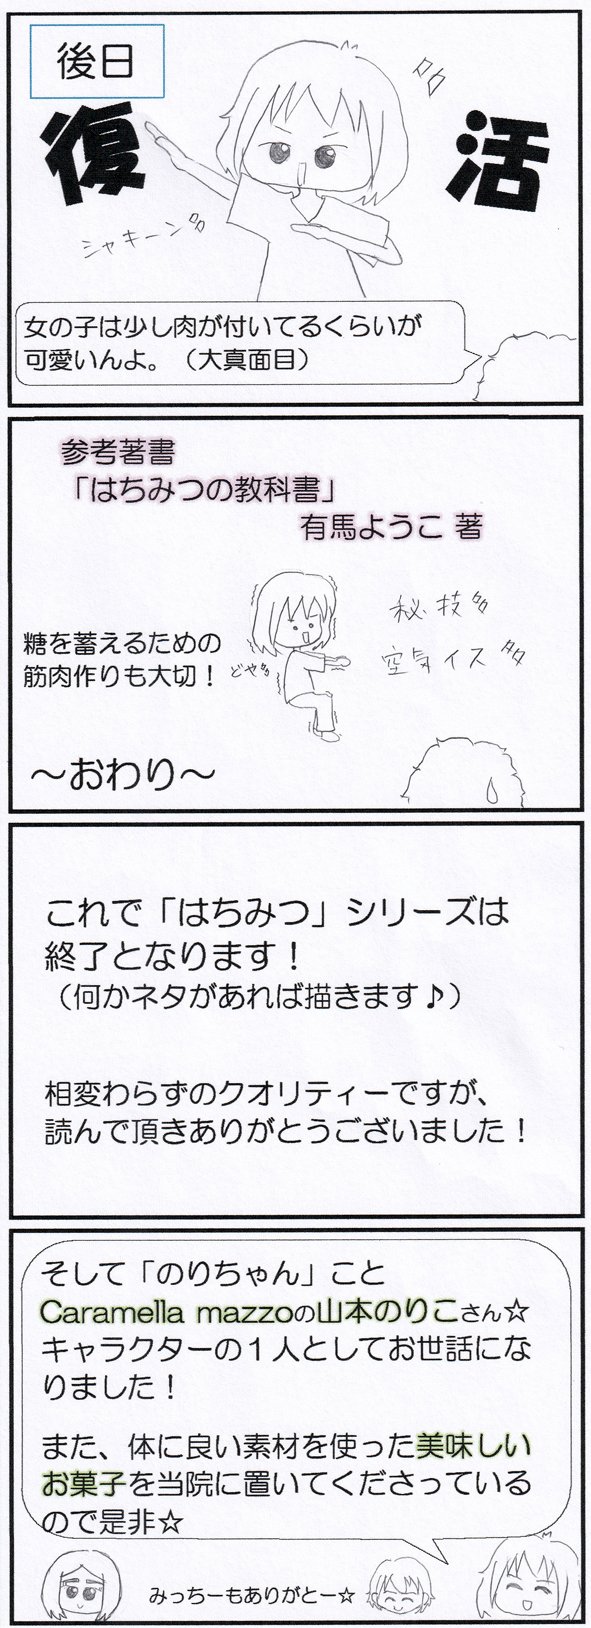 後日
復活
シャキーン
女の子は少し肉が付いてるくらいが
可愛いんよ。（大真面目）
参考著書
「はちみつの教科書」
有馬ようこ 著
秘技
空気イス
糖を蓄えるための
筋肉作りも大切！
どやっ
～おわり～
これで「はちみつ」シリーズは
終了となります！
（何かネタがあれば描きます♪）
相変わらずのクオリティーですが、
読んで頂きありがとうございました！
そして「のりちゃん」こと
Caramella mazzoの山本のりこさん☆
キャラクターの１人としてお世話にな
りました！
また、体に良い素材を使った美味しい
お菓子を当院に置いてくださっている
ので是非☆
みっちーもありがとー☆